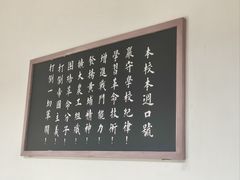 本校本週口號
嚴守學校紀律！
學習革命技術！
增進戰鬥能力！
發揚黃埔精神！
擴大農工組織！
團結革命分子！
打倒帝國主義！
打倒一切軍閥！